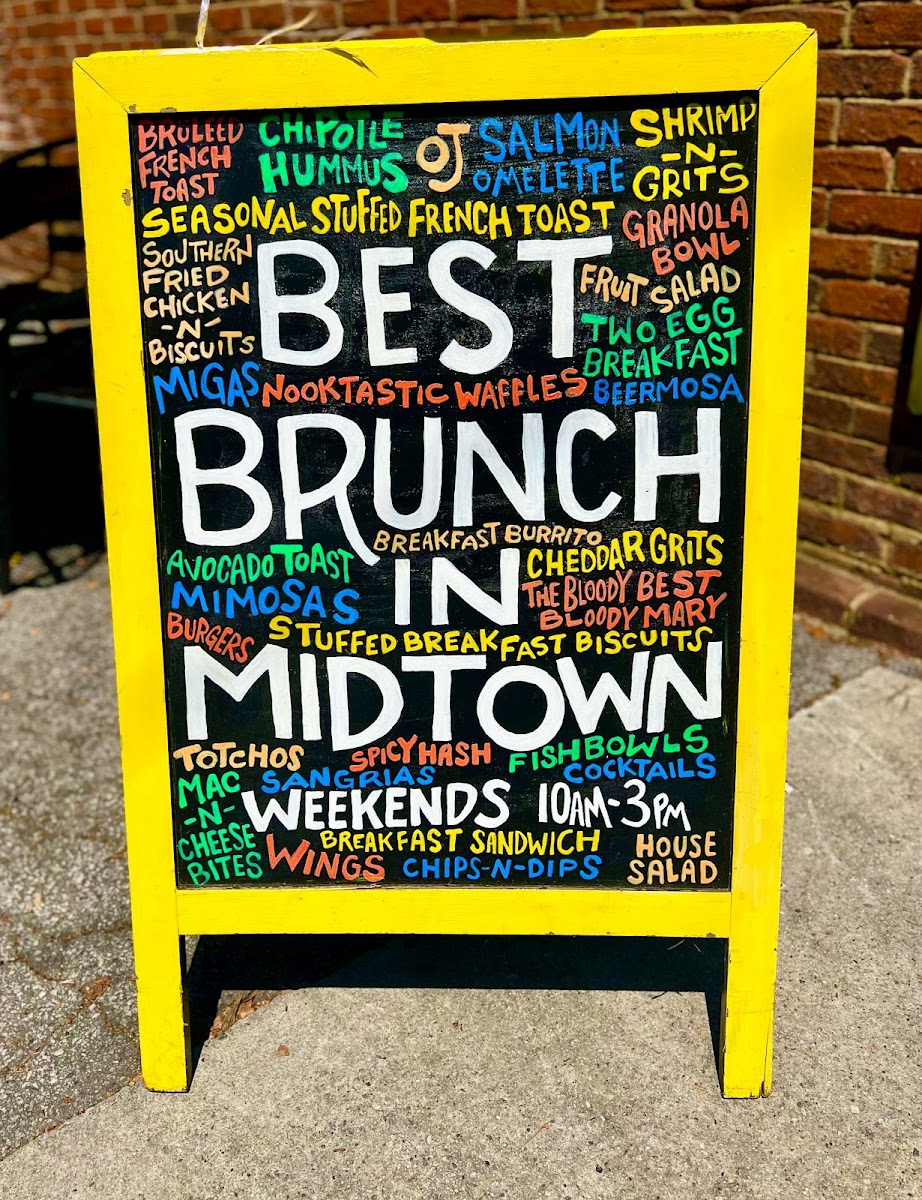 BRULEED
FRENCH
TOAST
CHIPOTLE
HUMMUS
OJ
SALMON
OMELETTE
SHRIMP
-N-
GRITS
SEASONAL STUFFED FRENCH TOAST
GRANOLA
BOWL
SOUTHERN
FRIED
CHICKEN
-N-
BISCUITS
BEST
FRUIT SALAD
TWO EGG
BREAKFAST
MIGAS
NOOKTASTIC WAFFLES
BEERMOSA
BRUNCH
BREAKFAST BURRITO
AVOCADO TOAST
MIMOSAS
IN
CHEDDAR GRITS
THE BLOODY BEST
BLOODY MARY
BURGERS
STUFFED BREAKFAST BISCUITS
MIDTOWN
TOTCHOS
SPICY HASH
FISHBOWLS
MAC
-N-
CHEESE
BITES
SANGRIAS
COCKTAILS
WEEKENDS 10AM-3PM
BREAKFAST SANDWICH
WINGS
CHIPS-N-DIPS
HOUSE
SALAD